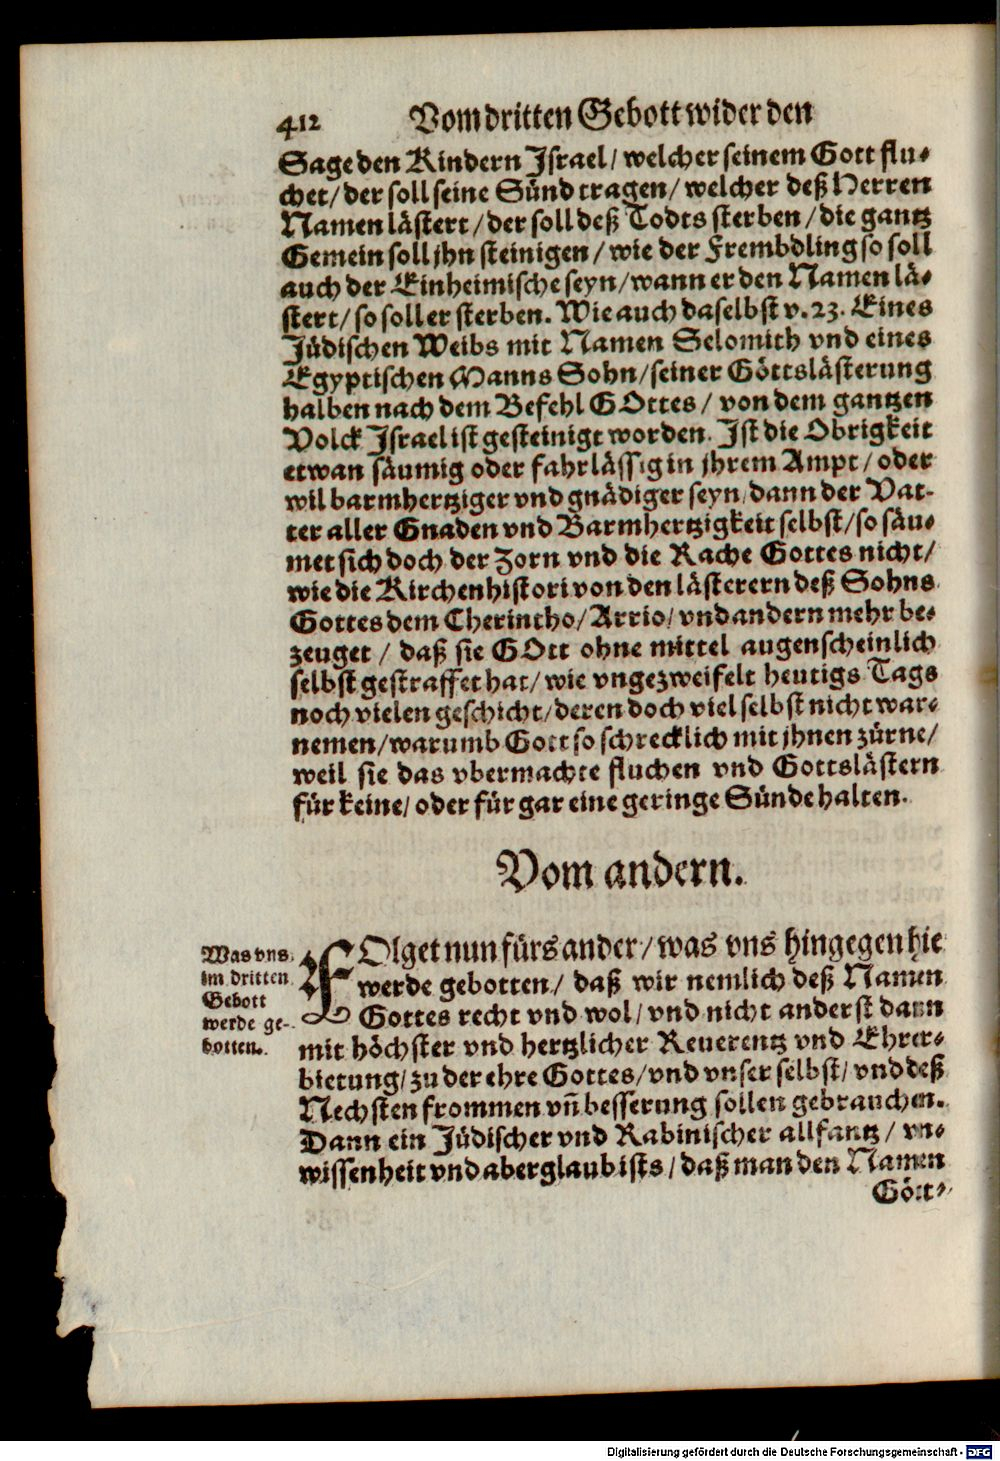 412 Vom dritten Gebott wider den
Sage den Kindern Jsrael / welcher seinem Gott flu-
chet / der soll seine Sünd tragen / welcher deß Herren
Namen lästert / der soll deß Todts sterben / die gantz
Gemein soll jhn steinigen / wie der Frembdling so soll
auch der Einheimische seyn / wann er den Namen lä-
stert / so soll er sterben. Wie auch daselbst v. 23. Eines
Jüdischen Weibs mit Namen Selomith vnd eines
Egyptischen Manns Sohn / seiner Göttslästerung
halben nach dem Befehl GOttes / von dem gantzen
Volck Jsrael ist gesteinigt worden. Jst die Obrigkeit
etwan säumig oder fahrlässig in jhrem Ampt / oder
wil barmhertziger vnd gnädiger seyn / dann der Vat-
ter aller Gnaden vnd Barmhertzigkeit selbst / so säu-
met sich doch der Zorn vnd die Rache Gottes nicht /
wie die Kirchenhistori von den lästerern deß Sohns
Gottes dem Cherintho / Arrio / vnd andern mehr be-
zeuget / daß sie GOtt ohne mittel augenscheinlich
selbst gestraffet hat / wie vngezweifelt heutigs Tags
noch vielen geschicht / deren doch viel selbst nicht war-
nemen / warumb Gott so schrecklich mit jhnen zürne /
weil sie das vbermachte fluchen vnd Gottslästern
für keine / oder für gar eine geringe Sünde halten.
Vom andern.
Was vns
im dritten
Gebott
werde ge-
botten.
FOlget nun fürs ander / was vns hingegen hie
werde gebotten / daß wir nemlich deß Namen
Gottes recht vnd wol / vnd nicht anderst dann
mit höchster vnd hertzlicher Reuerentz vnd Ehrer-
bietung / zu der ehre Gottes / vnd vnser selbst / vnd deß
Nechsten frommen vñ besserung sollen gebrauchen.
Dann ein Jüdischer vnd Rabinischer allfantz / vn-
wissenheit vnd aberglaub ists / daß man den Namen
Gött-
Digitalisierung gefördert durch die Deutsche Forschungsgemeinschaft - DFG